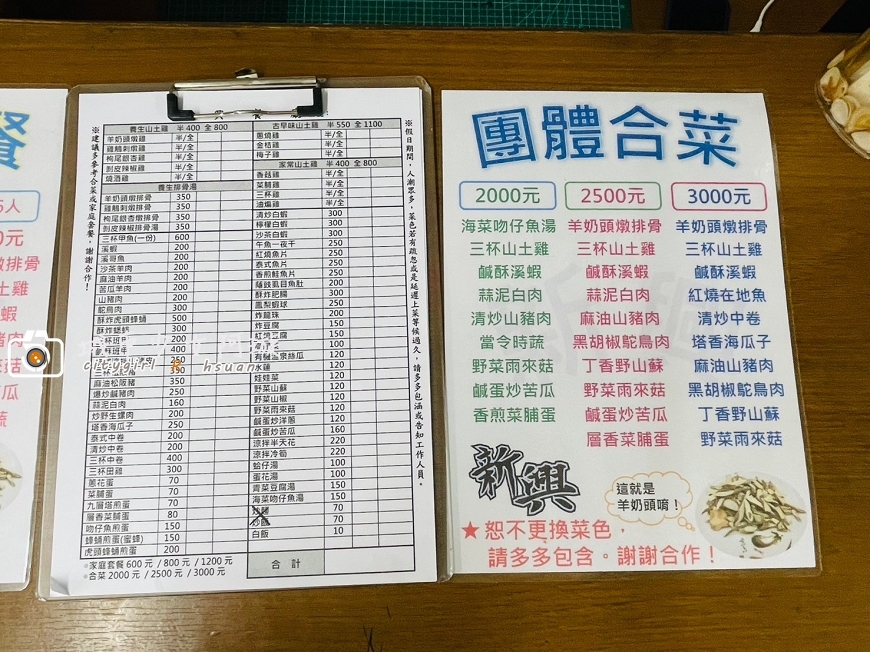 餐
6人
0元
排骨
土雞
※建議多參考合菜或家庭套餐，謝謝合作！
養生山土雞 半 400 全 800
羊奶頭燉雞 半/全
雞觴刺燉雞 半/全
枸尾銀杏雞 半/全
剝皮辣椒雞 半/全
燒酒雞 半/全
養生排骨湯
羊奶頭燉排骨 350
雞觴刺燉排骨 350
枸尾銀杏燉排骨 350
剝皮辣椒排骨湯 350
三杯甲魚(一份) 600
溪蝦 200
溪哥魚 200
沙茶羊肉 200
麻油羊肉 200
苦瓜羊肉 200
山豬肉 200
鴕鳥肉 300
酥炸虎頭蜂蛹 500
酥炸蟋蟀 300
麻油松阪豬 350
爆炒鹹豬肉 250
蒜泥白肉 160
炒野生螺肉 200
塔香海瓜子 250
泰式中卷 200
清炒中卷 200
三杯中卷 400
三杯田雞 300
蔥花蛋 70
菜脯蛋 70
九層塔煎蛋 70
層香菜脯蛋 80
吻仔魚煎蛋 150
蜂蛹煎蛋(蜜蜂) 150
虎頭蜂蛹煎蛋 200
※家庭套餐 600 元 / 800 元 / 1200 元
※合菜 2000 元 / 2500 元 / 3000 元
古早味山土雞 半 550 全 1100
蔥燒雞 半/全
金桔雞 半/全
梅子雞 半/全
家常山土雞 半 400 全 800
香菇雞 半/全
菜脯雞 半/全
三杯雞 半/全
油燜雞 半/全
清炒白蝦 300
檸檬白蝦 300
沙茶白蝦 300
午魚一夜干 250
紅燒魚片 250
泰式魚片 250
香煎鮭魚片 250
蔭豉虱目魚肚 200
酥炸肥腸 300
鳳梨蝦球 250
炸龍珠 200
炸豆腐 150
水蓮 120
娃娃菜 120
野菜山蘇 120
野菜山椒 120
野菜雨來菇 120
鹹蛋炒洋蔥 120
鹹蛋炒苦瓜 160
涼拌半天花 220
涼拌冷筍 220
蛤仔湯 100
蛋花湯 100
青菜豆腐湯 150
海菜吻仔魚湯 150
炒麵 70
炒飯 70
白飯 10
合 計
※假日期間，人潮眾多，菜色若有疏忽或是延遲上菜等候過久，請多多包涵或告知工作人員。
團體合菜
2000元 2500元 3000元
海菜吻仔魚湯 羊奶頭燉排骨 羊奶頭燉排骨
三杯山土雞 三杯山土雞 三杯山土雞
鹹酥溪蝦 鹹酥溪蝦 鹹酥溪蝦
蒜泥白肉 蒜泥白肉 紅燒在地魚
清炒山豬肉 麻油山豬肉 清炒中卷
當令時蔬 黑胡椒鴕鳥肉 塔香海瓜子
野菜雨來菇 丁香野山蘇 麻油山豬肉
鹹蛋炒苦瓜 野菜雨來菇 黑胡椒鴕鳥肉
香煎菜脯蛋 鹹蛋炒苦瓜 丁香野山蘇
層香菜脯蛋 野菜雨來菇
新興
這就是
羊奶頭唷！
★恕不更換菜色，
請多多包含。謝謝合作！